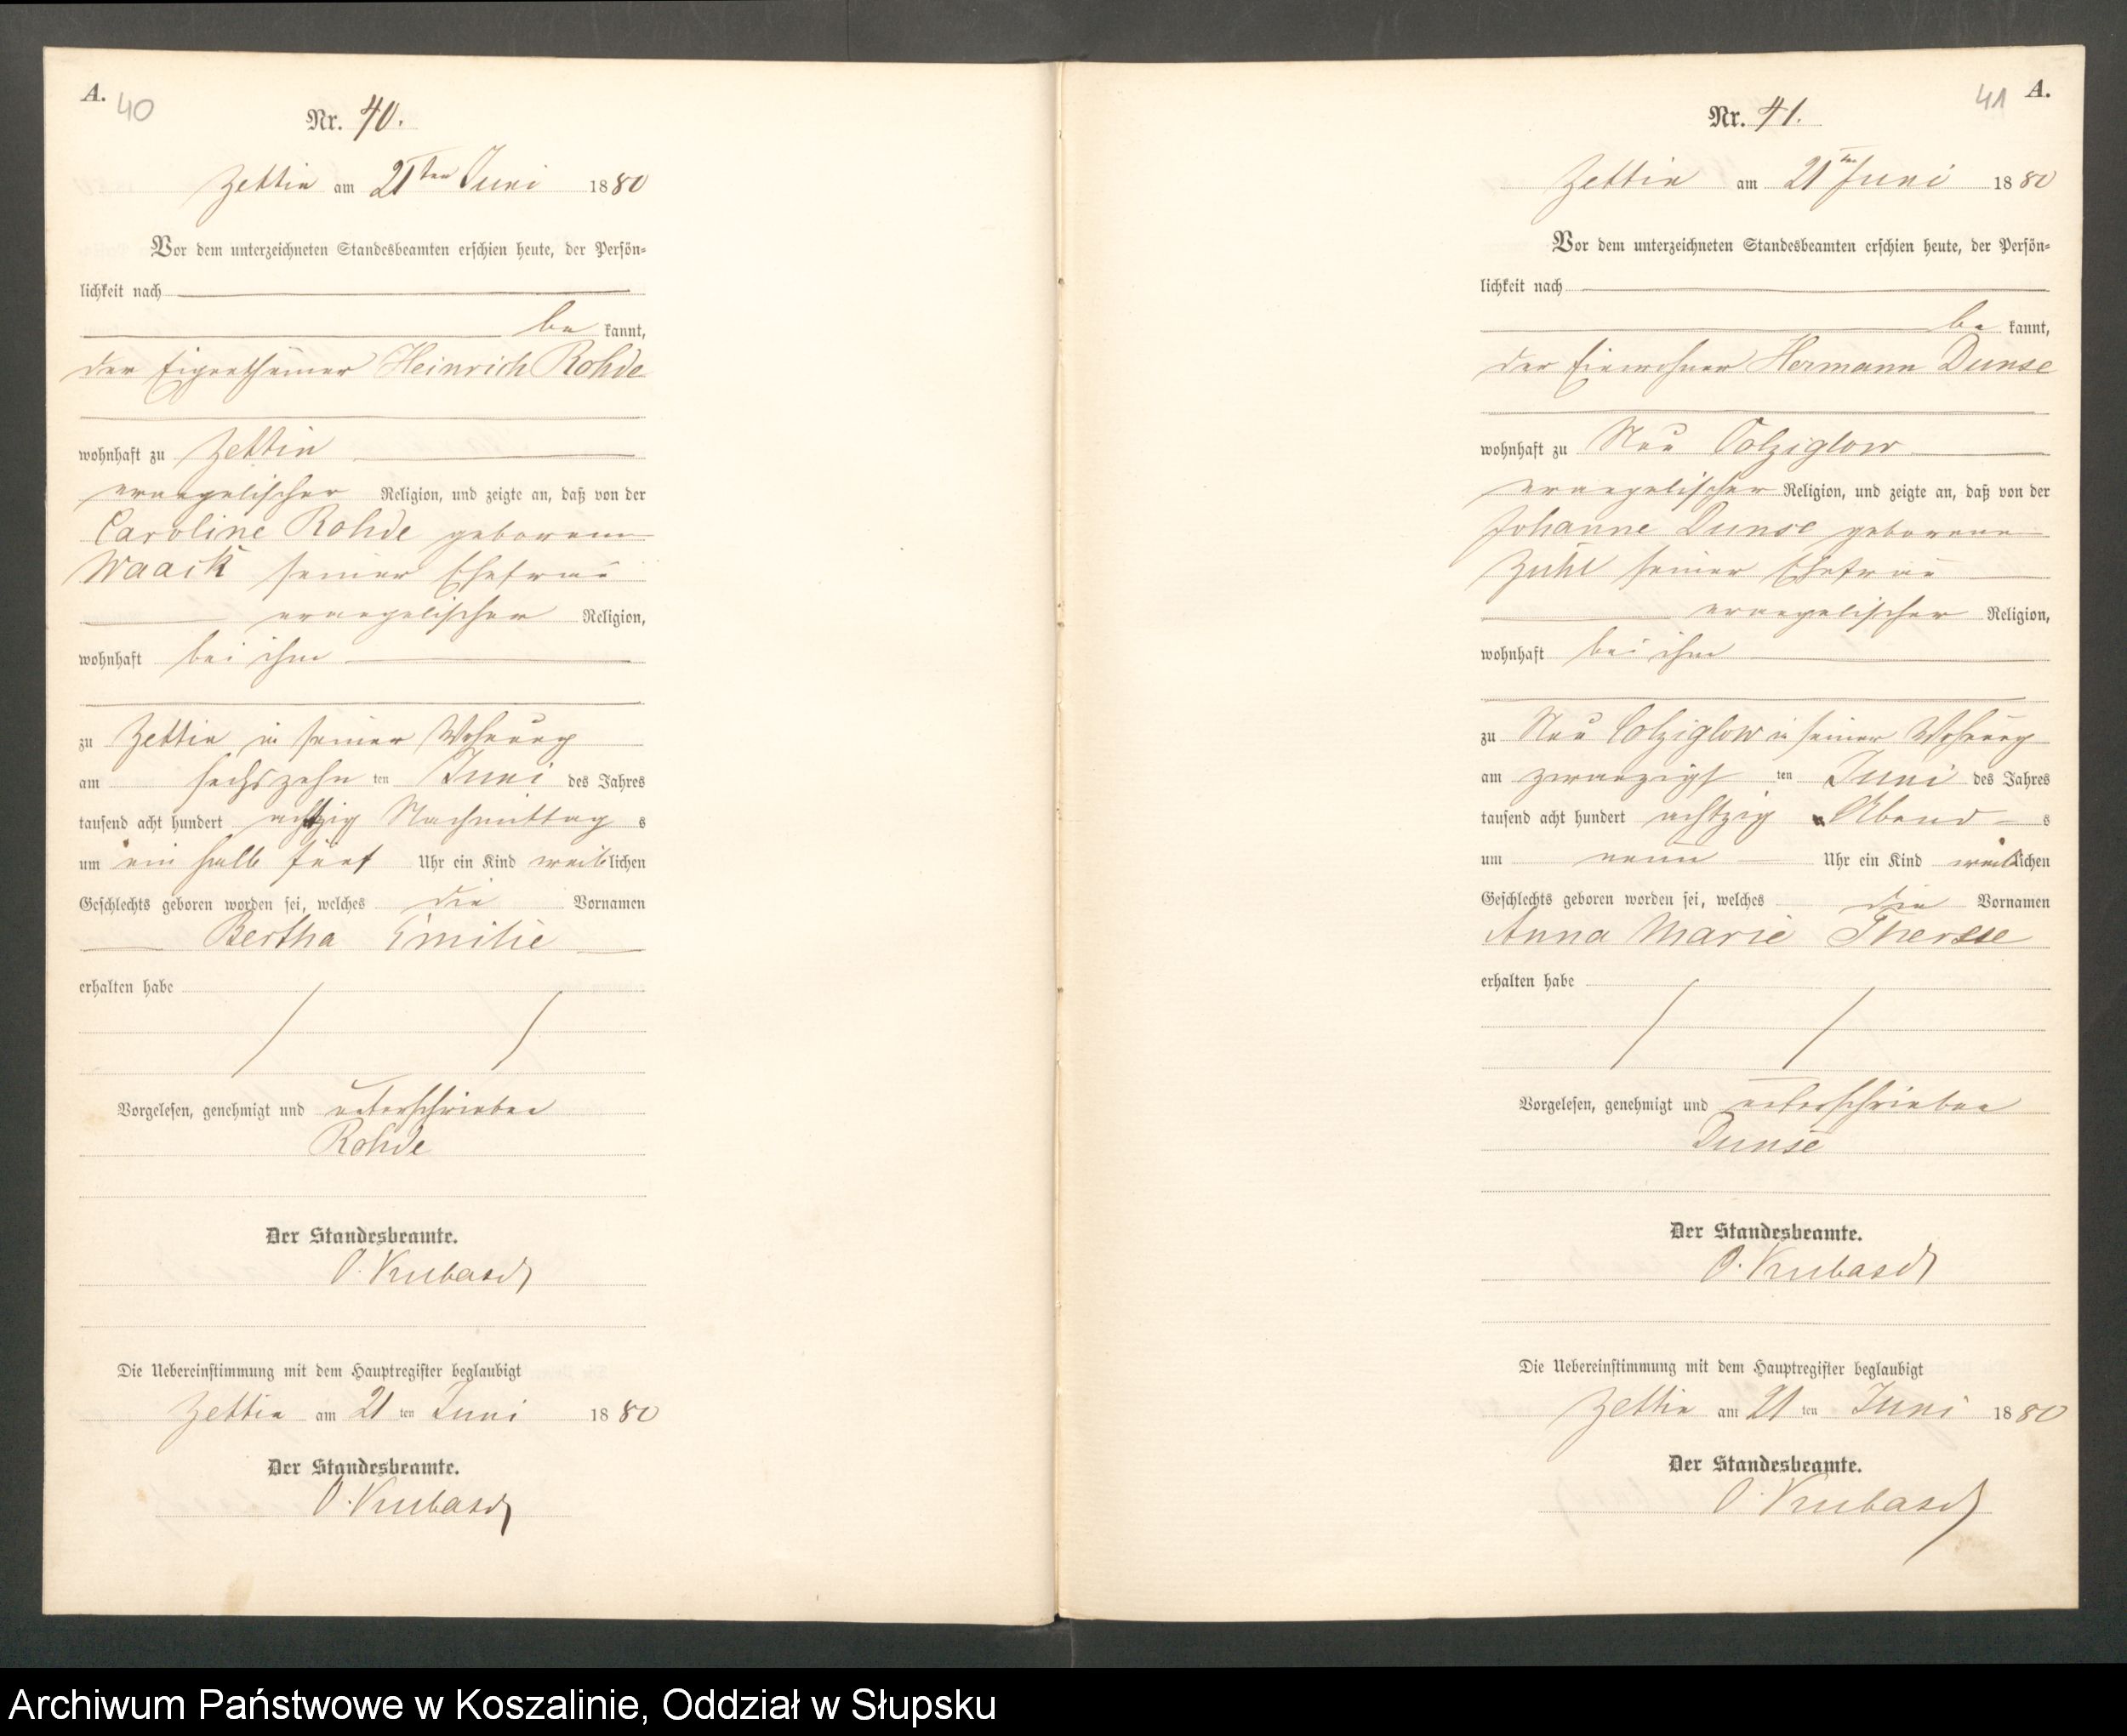 A. 40
Nr. 40.
Zettin am 21ten Juni 1880
Vor dem unterzeichneten Standesbeamten erschien heute, der Persön-
lichkeit nach
be kannt,
der Eigenthümer Heinrich Rohde
wohnhaft zu Zettin
evangelischer Religion, und zeigte an, daß von der
Caroline Rohde geborenen
Waack seiner Ehefrau
evangelischer Religion,
wohnhaft bei ihm
zu Zettin in seiner Wohnung
am sechszehn ten Juni des Jahres
tausend acht hundert achtzig Nachmittag s
um ein halb fünf Uhr ein Kind weiblichen
Geschlechts geboren worden sei, welches die Vornamen
Bertha Emilie
erhalten habe
Vorgelesen, genehmigt und unterschrieben
Rohde
Der Standesbeamte.
O. Kubasch
Die Uebereinstimmung mit dem Hauptregister beglaubigt
Zettin am 21 ten Juni 1880
Der Standesbeamte.
O. Kubasch
41 A.
Nr. 41.
Zettin am 21ten Juni 1880
Vor dem unterzeichneten Standesbeamten erschien heute, der Persön-
lichkeit nach
be kannt,
der Einwohner Hermann Dunse
wohnhaft zu Neu Colziglow
evangelischer Religion, und zeigte an, daß von der
Johanne Dunse geborene
Zühl seiner Ehefrau
evangelischer Religion,
wohnhaft bei ihm
zu Neu Colziglow in seiner Wohnung
am zwanzigst ten Juni des Jahres
tausend acht hundert achtzig Abend s
um neun Uhr ein Kind weiblichen
Geschlechts geboren worden sei, welches die Vornamen
Anna Marie Therese
erhalten habe
Vorgelesen, genehmigt und unterschrieben
Dunse
Der Standesbeamte.
O. Kubasch
Die Uebereinstimmung mit dem Hauptregister beglaubigt
Zettin am 21 ten Juni 1880
Der Standesbeamte.
O. Kubasch
Archiwum Państwowe w Koszalinie, Oddział w Słupsku